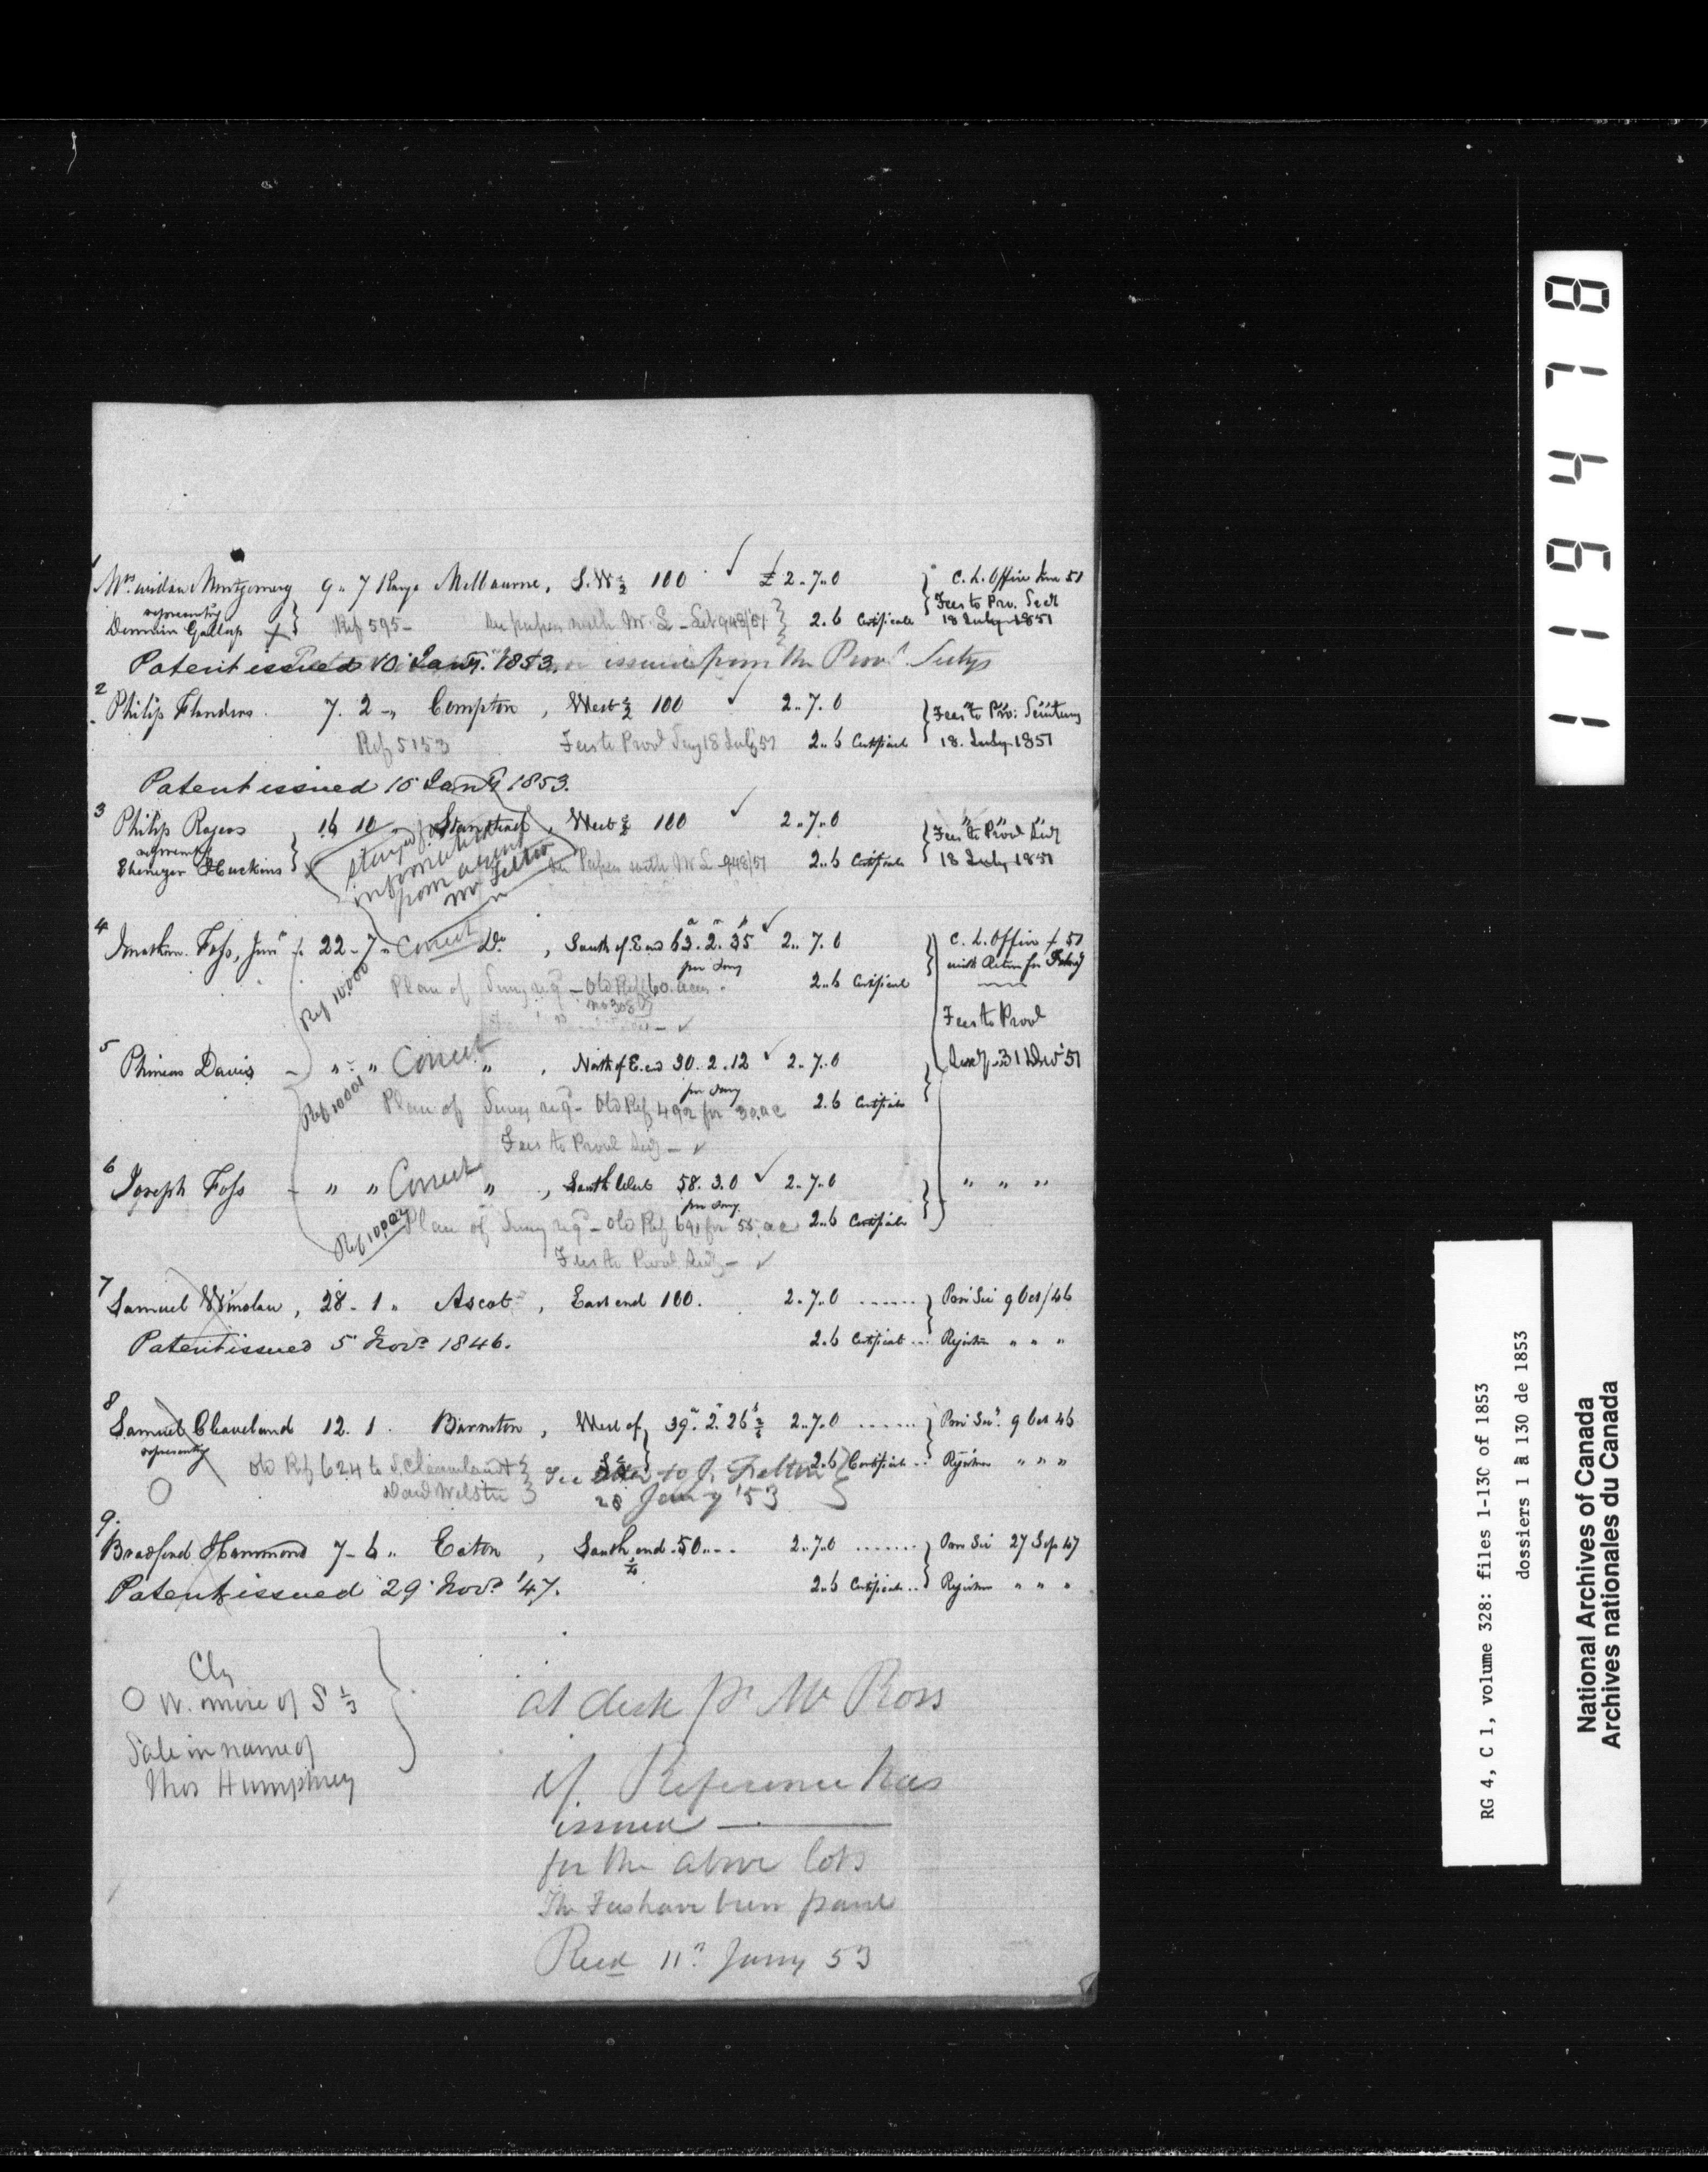 1 Mrs. widow Montgomery 9 .. 7 Range Melbourne, S. W ½ 100 ✓ £ 2 .. 7 .. 0 C. L. Office June 51
representing Fees to Prov. Secy
Gallup Ref 595 - See papers with M. L - Let 948/51 2.6 Certificate 18 July 1851
Patent issued 10 Jany. 1853. issue from the Provl. Secty
2 Philip Flanders. 7. 2 - " Compton, West ½ 100 ✓ 2 .. 7 . 0 Fees to Pro: Secretary
Ref 5153 Fees to Provl Secy 18 July 51 2 .. 6 Certificate 18. July 1851
Patent issued 15 Jany 1853.
3 Philip Rogers 16 10 " Stanstead, West ½ 100 ✓ 2 .. 7 .. 0 Fees to Provl Secy
representing
Ebenezer Huckins See Papers with M L 948/51 2 .. 6 Certificate 18 July 1851
stayed for
information
from agent
Mr Felton
4 Jonathan Foss, Junr 22 - 7 - Correct Do. , South of E end 63 . 2 . 35 ✓ 2 .. 7 . 0 C. L. Office 51
per Survey with Return for
Ref 10,000 Plan of Survey reqd - Old Ref 60. acres. 2 .. 6 Certificate
no 305
Fees to Provl
5 Phineas Davis - " - " Correct " , North of E. end 30 . 2 . 12 ✓ 2 .. 7 .. 0 Secy. 31 Decr 51
per Survey
Ref 10001 Plan of Survey reqd - Old Ref 492 for 30. ac 2.6 Certificate
Fees to Provl Secy - ✓
6 Joseph Foss - " " Correct " , South West 58. 3. 0 ✓ 2 .. 7 .. 0 " " "
per Survey
Ref 10,002 Plan of Survey reqd - Old Ref 691 for 55. ac 2 .. 6 Certificate
Fees to Provl Secy - ✓
7 Samuel Winslow, 28 - 1 " Ascot , East end 100. 2 .. 7 .. 0 ...... Prov Sec 9 Oct/46
Patent issued 5 Novr. 1846. 2.6 Certificate ... Registrar " " "
8 Samuel Cleaveland 12. 1. Barnston, West of 39. 2. 26 ½ 2 .. 7 .. 0 ...... Prov Secy. 9 Oct 46
representing S ⅓ 2.6 Certificate .. Registrar " " "
Old Ref 624 to S. Cleaveland & See letter to J. Felton
David Webster 28 Jany '53
9. Bradford Hammond 7 - 6 " Eaton , South end 50 .... 2 .. 7 .. 0 ....... Prov Sec 27 Sep 47
¼
Patent issued 29 Novr. '47. 2 .. 6 Certificate .. Registrar " " "
Cly
O W. moire of S ⅓
Sale in name of
Thos Humphrey
at desk pr Mr Ross
if Reference has
issued
for the above lots
The Fees have been paid
Recd 11th Jany 53
119478
RG 4, C 1, volume 328: files 1-130 of 1853
dossiers 1 à 130 de 1853
National Archives of Canada
Archives nationales du Canada